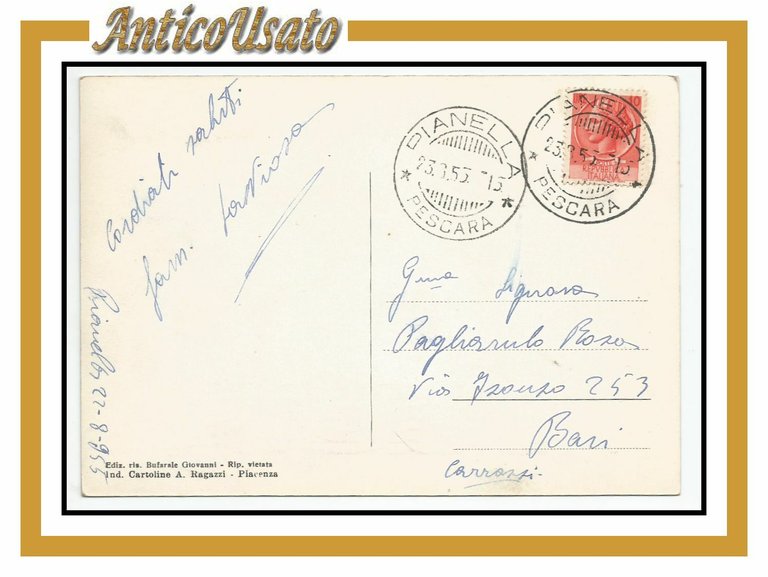 AnticoUsato
Cordiali saluti
fam.
Pianella 22-8-955
PIANELLA
23.8.55.-15
* PESCARA *
PIANELLA
23.8.55.-15
* PESCARA *
10
Gma Signora
Pagliarulo Rosa
Via Isonzo 253
Bari
Carrassi
Ediz. ris. Bufarale Giovanni - Rip. vietata
Ind. Cartoline A. Ragazzi - Piacenza